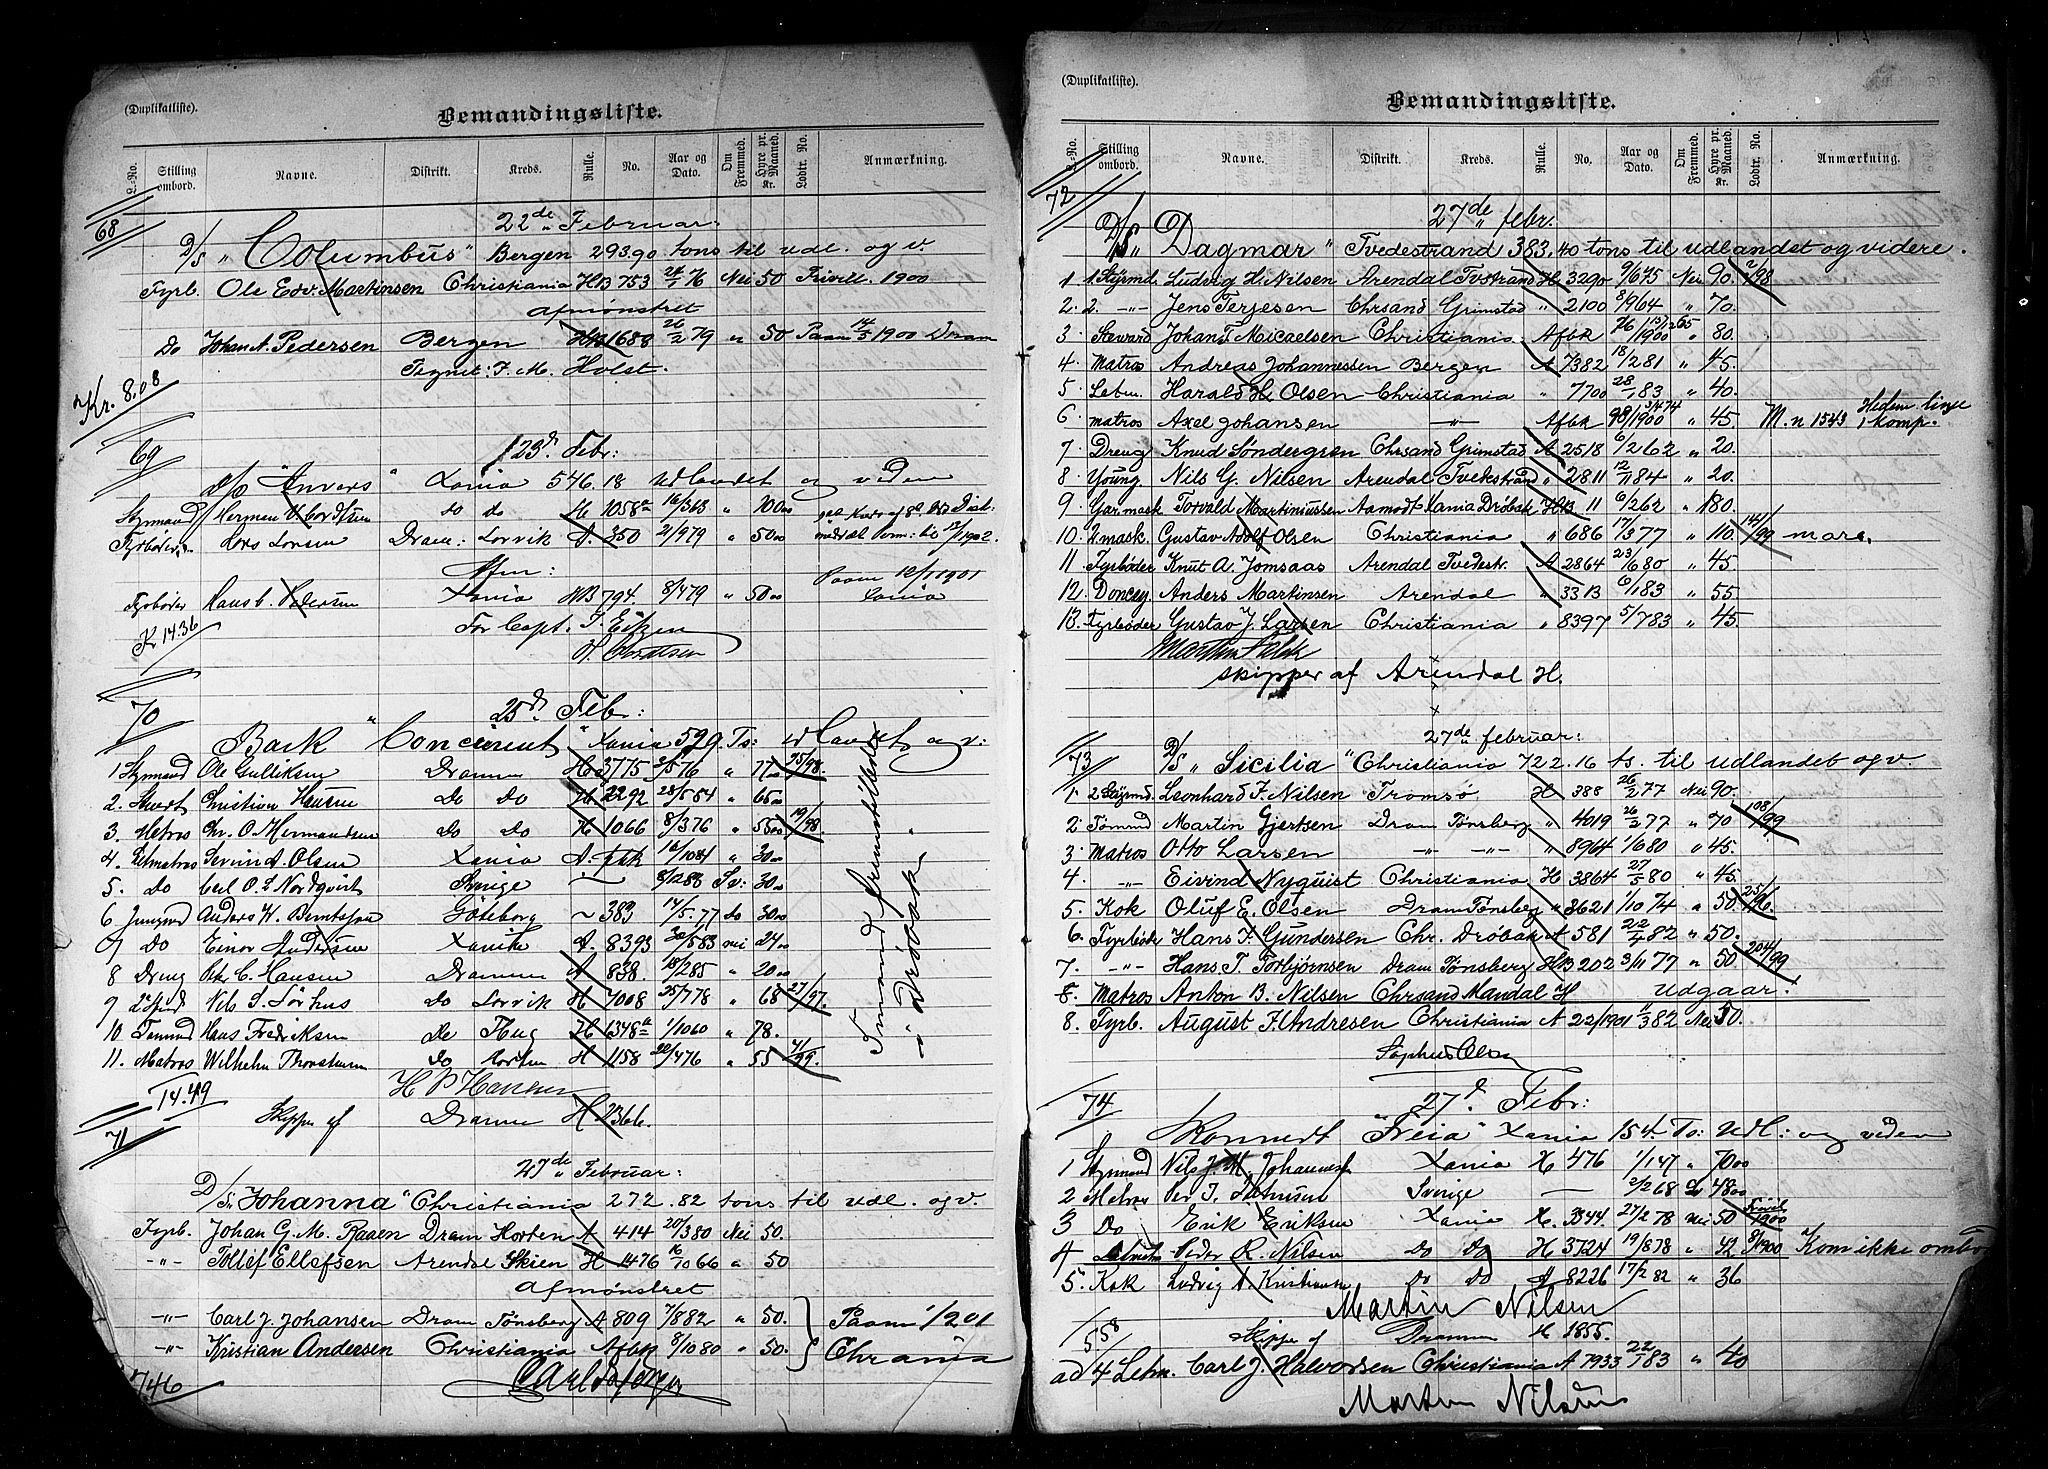 (Duplikatliste).
Bemandingsliste.
L.-No. Stilling ombord. Navne. Distrikt. Kreds. Rulle. No. Aar og Dato. Om Fremmed. Hyre pr. Maaned. Kr. Lodtr. No. Anmærkning.
68
22de Februar:
D/S "Columbus" Bergen 293.90 tons til udl. og v.
Fyrb. Ole Edv. Martinsen Christiania HB 753 24/5 76 Nei 50 Frivill. 1900
afmønstret
Do Johan A. Pedersen Bergen HB 1688 26/2 79 " 50 Paam 14/5 1900 Dram
Tegnet: F. M. Holst.
Kr. 8.08
69
23d Febr:
D/S "Anvers" Xania 546.18 udlandet og viden
Styrmand Herman do do H 1058a 16/3 63 " 100.00
Fyrbøder Lars Larsen Dram: Lorvik A. 350 2/9 79 " 50.00
Afm:
Fyrbøder Hans Pedersen Xania HB 794. 8/4 79 " 50.00 Paam 12/1 1901 Xania
Kr 14.36
For Capt.
70
25d Febr:
Bark "Concurrent" Xania 529 Ts: udlandet og v:
1 Styrmand Ole Gulliksen Dramm H 3775 3/5 76 " 77.00 75/98.
2. Stuert Christian Hansen Do Do H 2292 28/5 54 " 65.00
3. Matros Chr. O. Hermandsen do do H 1066 8/3 76 " 55.00 19/98.
4. Letmatros Severin A. Olsen Xania A. fbk 16/10 84 " 30.00
5. Do Carl O. L. Nordqvist Sverige — 8/12 83 Sv: 30.00
6 Jungmd Anders W. Berntsson Göteborg ~ 383 14/5.77 do 30.00
7 Do Einar Andersen Xania A. 8393 30/5 83 nei 24.00
8 Dreng Pet. C. Hansen Dramm A 838. 18/2 85 " 20.00
9 Nils S. Sørhus Do Lorvik H 7008 25/7 78 " 68 27/97.
10 Tømmd Hans Fredriksen Do Haug H 1348a 1/10 60 " 78.
11. Matros Wilhelm Thorstensen do Horten H 1158 20/4 76 " 55 41/99.
Tømmand i Drøbak
14.49 H P Hansen
Skipper af Drammen H 2366.
71
27de Februar:
D/S "Johanna" Christiania 272.82 tons til udl. og v.
Fyrb. Johan G. M. Raaen Dram Horten A 414 20/3 80 Nei 50.
-"- Tollef Ellefsen Arendal Skien H 1476 16/10 66 " 50
afmønstret
-"- Carl J. Johansen Dram Tønsberg A 809 7/8 82 " 50. Paam 1/2 01
-"- Kristian Andersen Christiania Afbk 8/10 80 " 50. Chrania
7/46
(Duplikatliste).
Bemandingsliste.
L.-No. Stilling ombord. Navne. Distrikt. Kreds. Rulle. No. Aar og Dato. Om Fremmed. Hyre pr. Maaned. Kr. Lodtr. No. Anmærkning.
72
27de febr.
D/S "Dagmar" Tvedestrand 383.40 tons til udlandet og videre.
1 1. Styrmd. Ludvig H. Nilsen Arendal Tvestrand H 3290 9/6 75 Nei 90. 2/98
2. 2. -"- Jens Terjesen Chrsand Grimstad " 2100 8/9 64 " 70.
3 Steward Johan F. Micaelsen Christiania Afbk 26/1 1900 15/12 65 " 80.
4 Matros Andreas Johannessen Bergen A 7382 18/2 81 " 45.
5 Letm. Harald H. Olsen Christiania " 7700 28/1 83 " 40.
6 matros Axel Johansen -"- Afbk 1900 3/4 74 " 45. M. n 1543 Hedem linje komp.
7 Dreng Knud Søndergren Chrsand Grimstad A 2518 6/2 62 " 20.
8 Young Nils G. Nilsen Arendal Tvedestrand " 2811 12/11 84 " 20.
9 1ar. mask Torvald Martiniussen Aamodt Xania Drøbak HB 11 6/2 62 " 180.
10. 2 mask. Gustav Adolf Olsen Christiania " 686 17/3 77 " 110. 141/99 mare.
11 Fyrbøder Knut A. Jomsaas Arendal Tvedestr. A 2864 23/6 80 " 45.
12. Donkey. Anders Martinsen Arendal " 3313 6/1 83 " 55.
13. Fyrbøder Gustav J. Larsen Christiania " 8397 5/7 83 " 45.
Martin Falck
skipper af Arendal H.
73
27de februar:
D/S "Sicilia" Christiania 722.16 ts. til udlandet og v.
1 2 Styrmd. Leonhard F. Nilsen Tromsø H 388 26/2 77 Nei 90.
2 Tømmd Martin Gjertsen Dram Tønsberg " 4019 26/2 77 " 70 108/99
3 Matros Otto Larsen -"- -"- " 8964 1/6 80 " 45.
4. -"- Eivind Nyquist Christiania H 3864 27/5 80 " 45.
5. Kok Oluf E. Olsen Dram Tønsberg " 3621 1/10 74 " 50 25/96.
6. Fyrbøder Hans F. Gundersen Chr. Drøbak A 581 22/4 82 " 50.
7. -"- Hans T. Torbjørnsen Dram Tønsberg HB 202 3/11 77 " 50 204/99
8. Matros Anton B. Nilsen Chrsand Mandal H udgaar!
8. Fyrb. August F. Andresen Christiania A 22/1901 1/3 82 Nei 50.
Sophus Olsen
74
27d Febr:
"Freia" Xania 154 Ts: udl: og viden
1 Styrmand Nils J. M. Johannesen Xania H 476 1/1 47 " 70.00
2 Matros Per J. Sverige — 2/2 68 Sv 48.00
3 Do Erik Eriksen Xania H. 3344 27/2 78 nei 50 Frivil 1900
4 Letmatr. Peder R. Nilsen Do Do H 3724 19/8 78 " 42 1900 Kom ikke ombo
5. Kok Ludvig A. Kristiansen Do Do A 8226 17/2 82 " 36
Martin Nilsen
Skipper af Drammen H 1855.
5 58
ad 4 Letm. Carl J. Halvorsen Christiania A 7933 22/1 83 " 40
Martin Nilsen